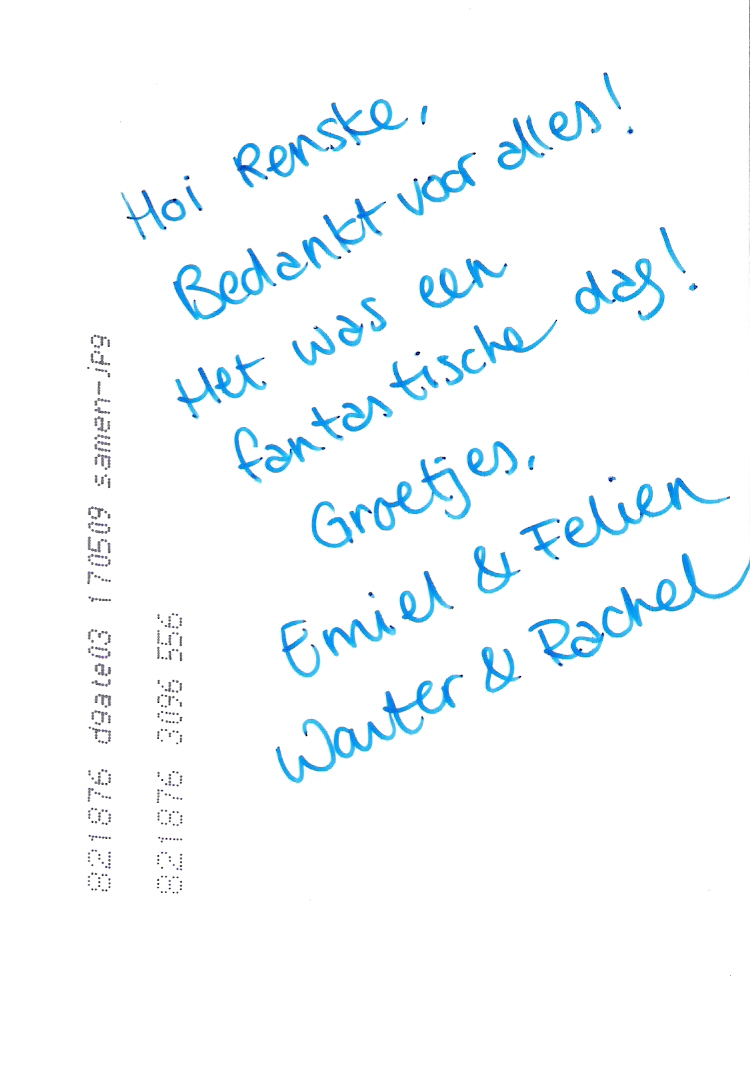 Hoi Renske,
Bedankt voor alles!
Het was een
fantastische dag!
Groetjes,
Emiel & Felien
Wouter & Rachel
821876 dgate03 170509 samen-jpg
821876 3096 556